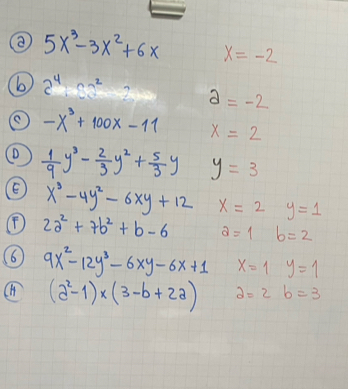 (a) 5x³-3x²+6x x=-2
(b) a⁴+8a²-2 a=-2
(c) -x³+100x-11 x=2
(D) 1/9 y³-2/3 y²+5/3 y y=3
(E) x³-4y²-6xy+12 x=2 y=1
(F) 2a²+7b²+b-6 a=1 b=2
(G) 9x²-12y³-6xy-6x+1 x=1 y=1
(H) (a²-1)×(3-b+2a) a=2 b=3